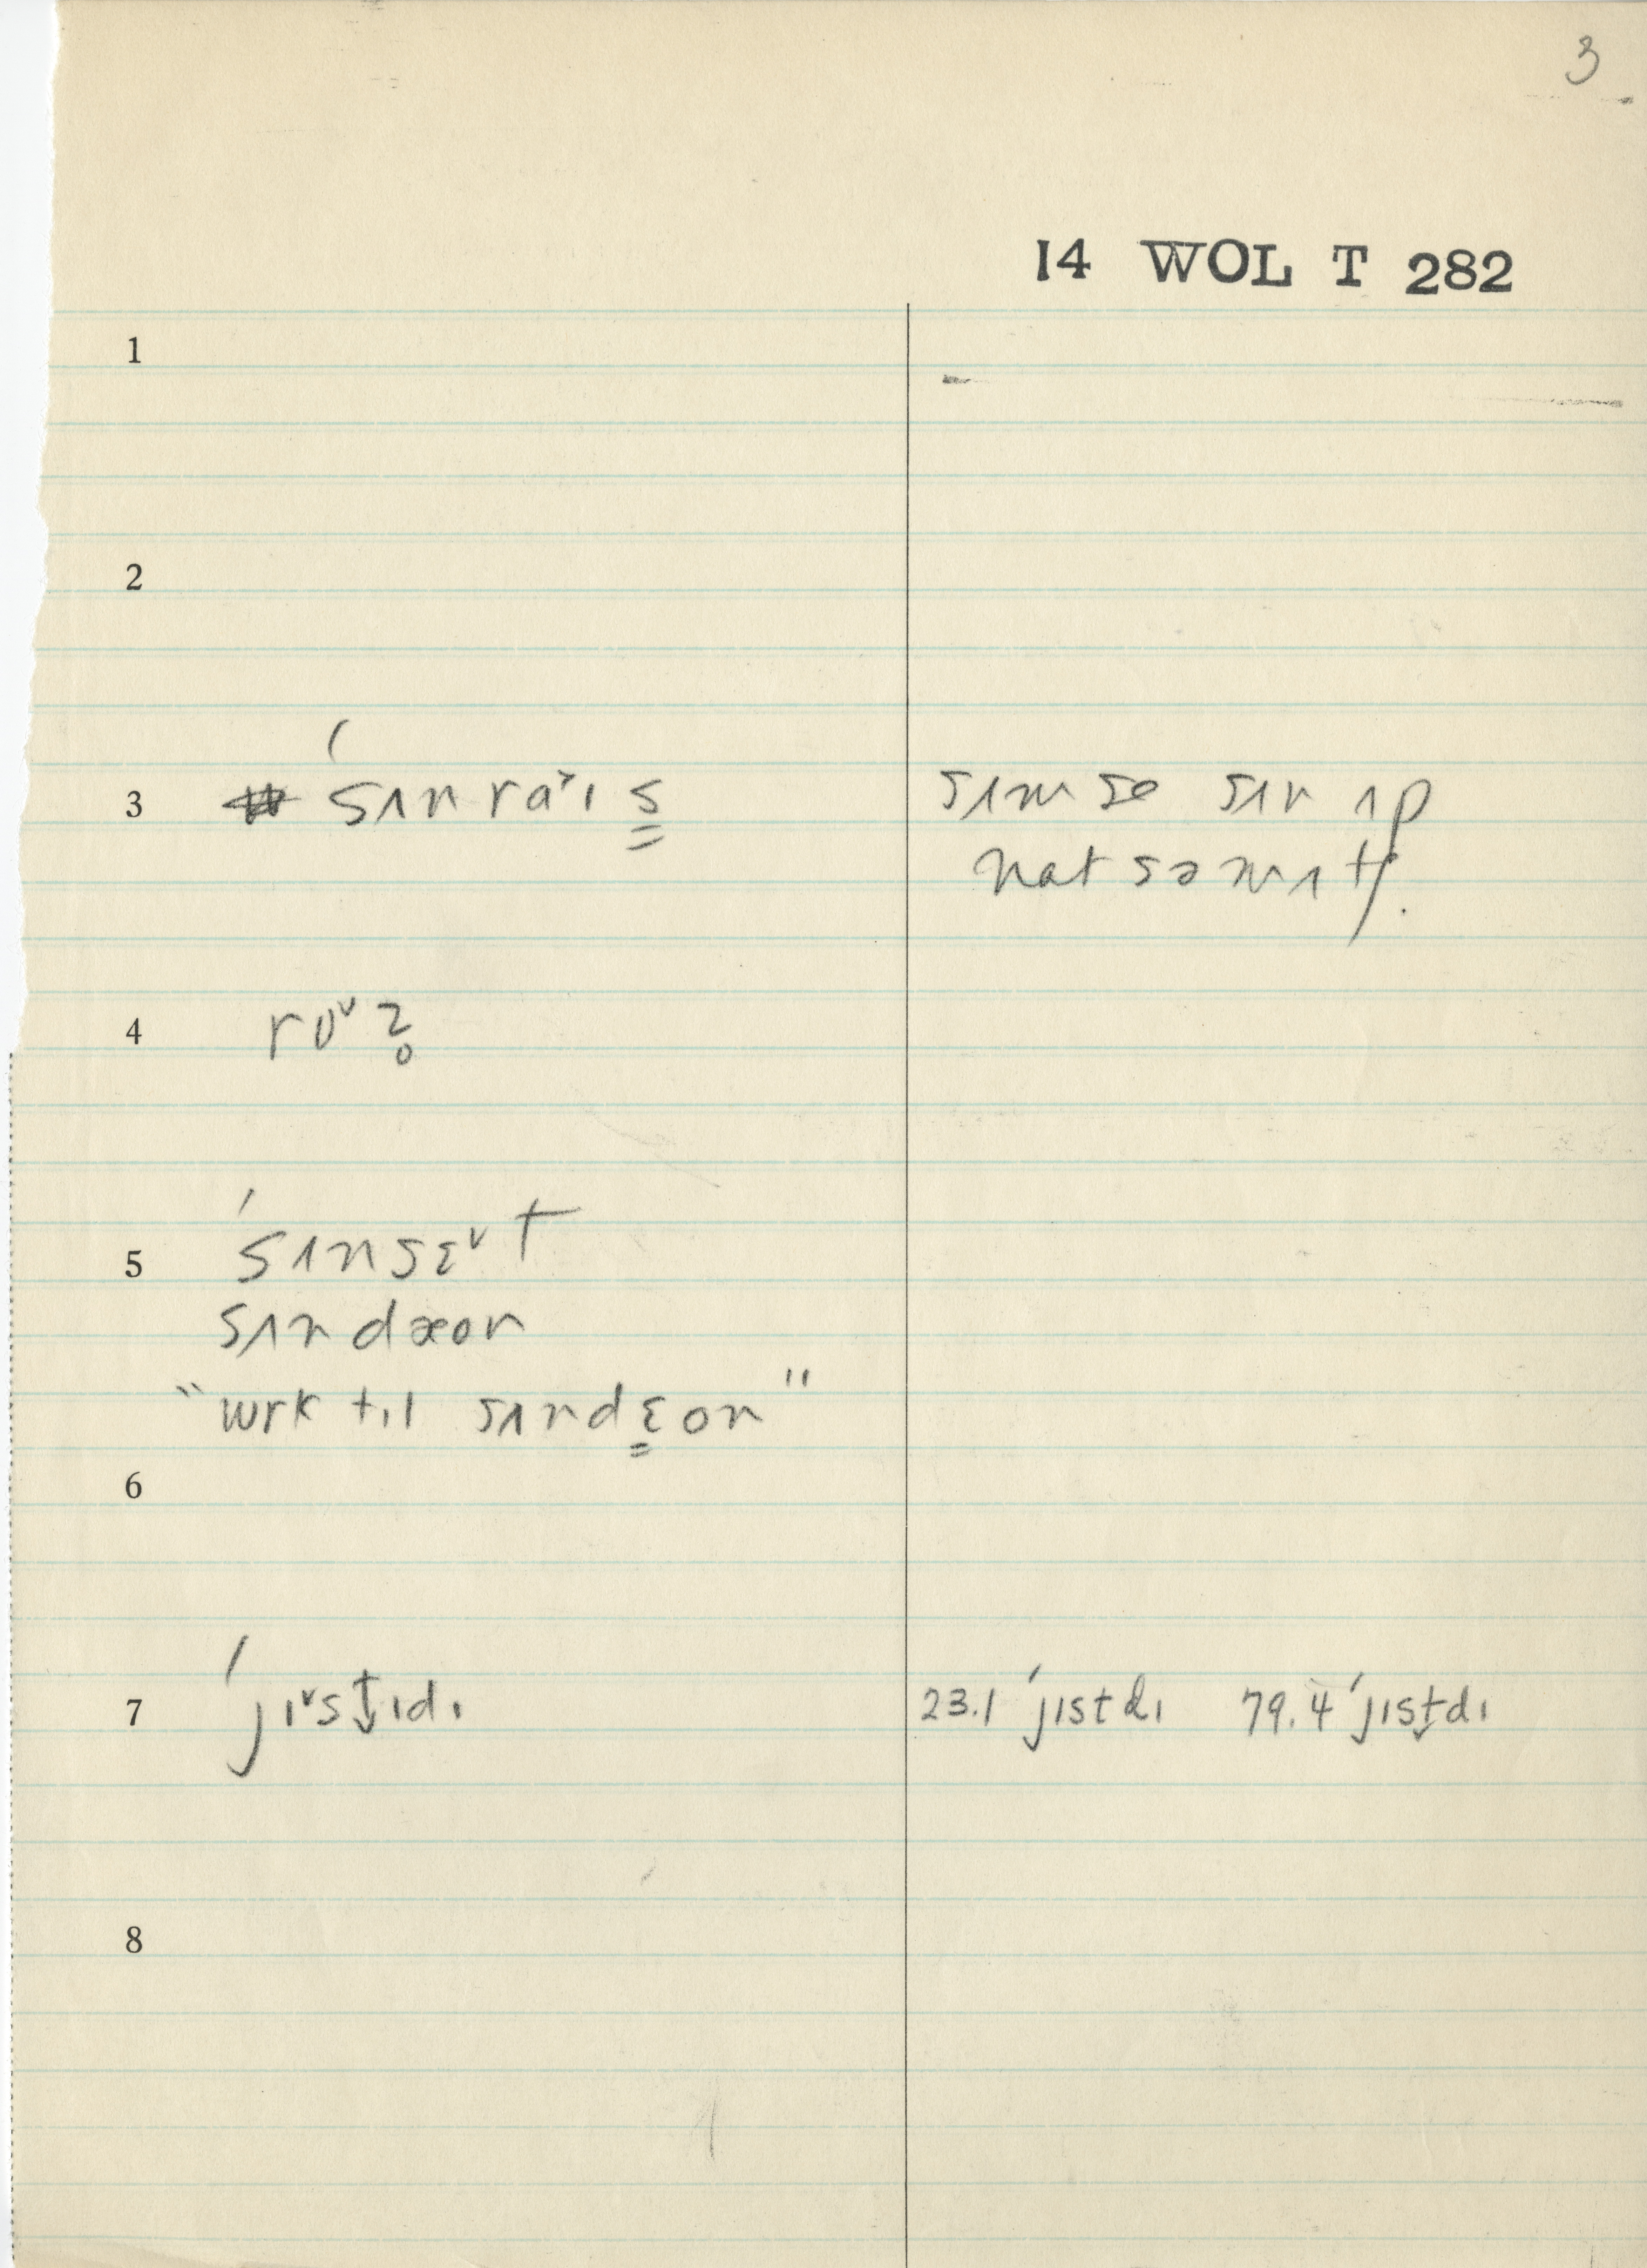 3
14 WOL T 282
1
2
3 ˈsʌnraˇɪs̳ sʌm se sʌn ʌp
nat sə mʌtʃ.
4 roˇz̥
5 ˈsʌnsɛˇt
sʌndæon
"wrk tɪl sʌndɛ̳on"
6
7 ˈjɪˇst̬ɪdɪ 23.1 ˈjɪstdɪ 79.4 ˈjɪst̬dɪ
8